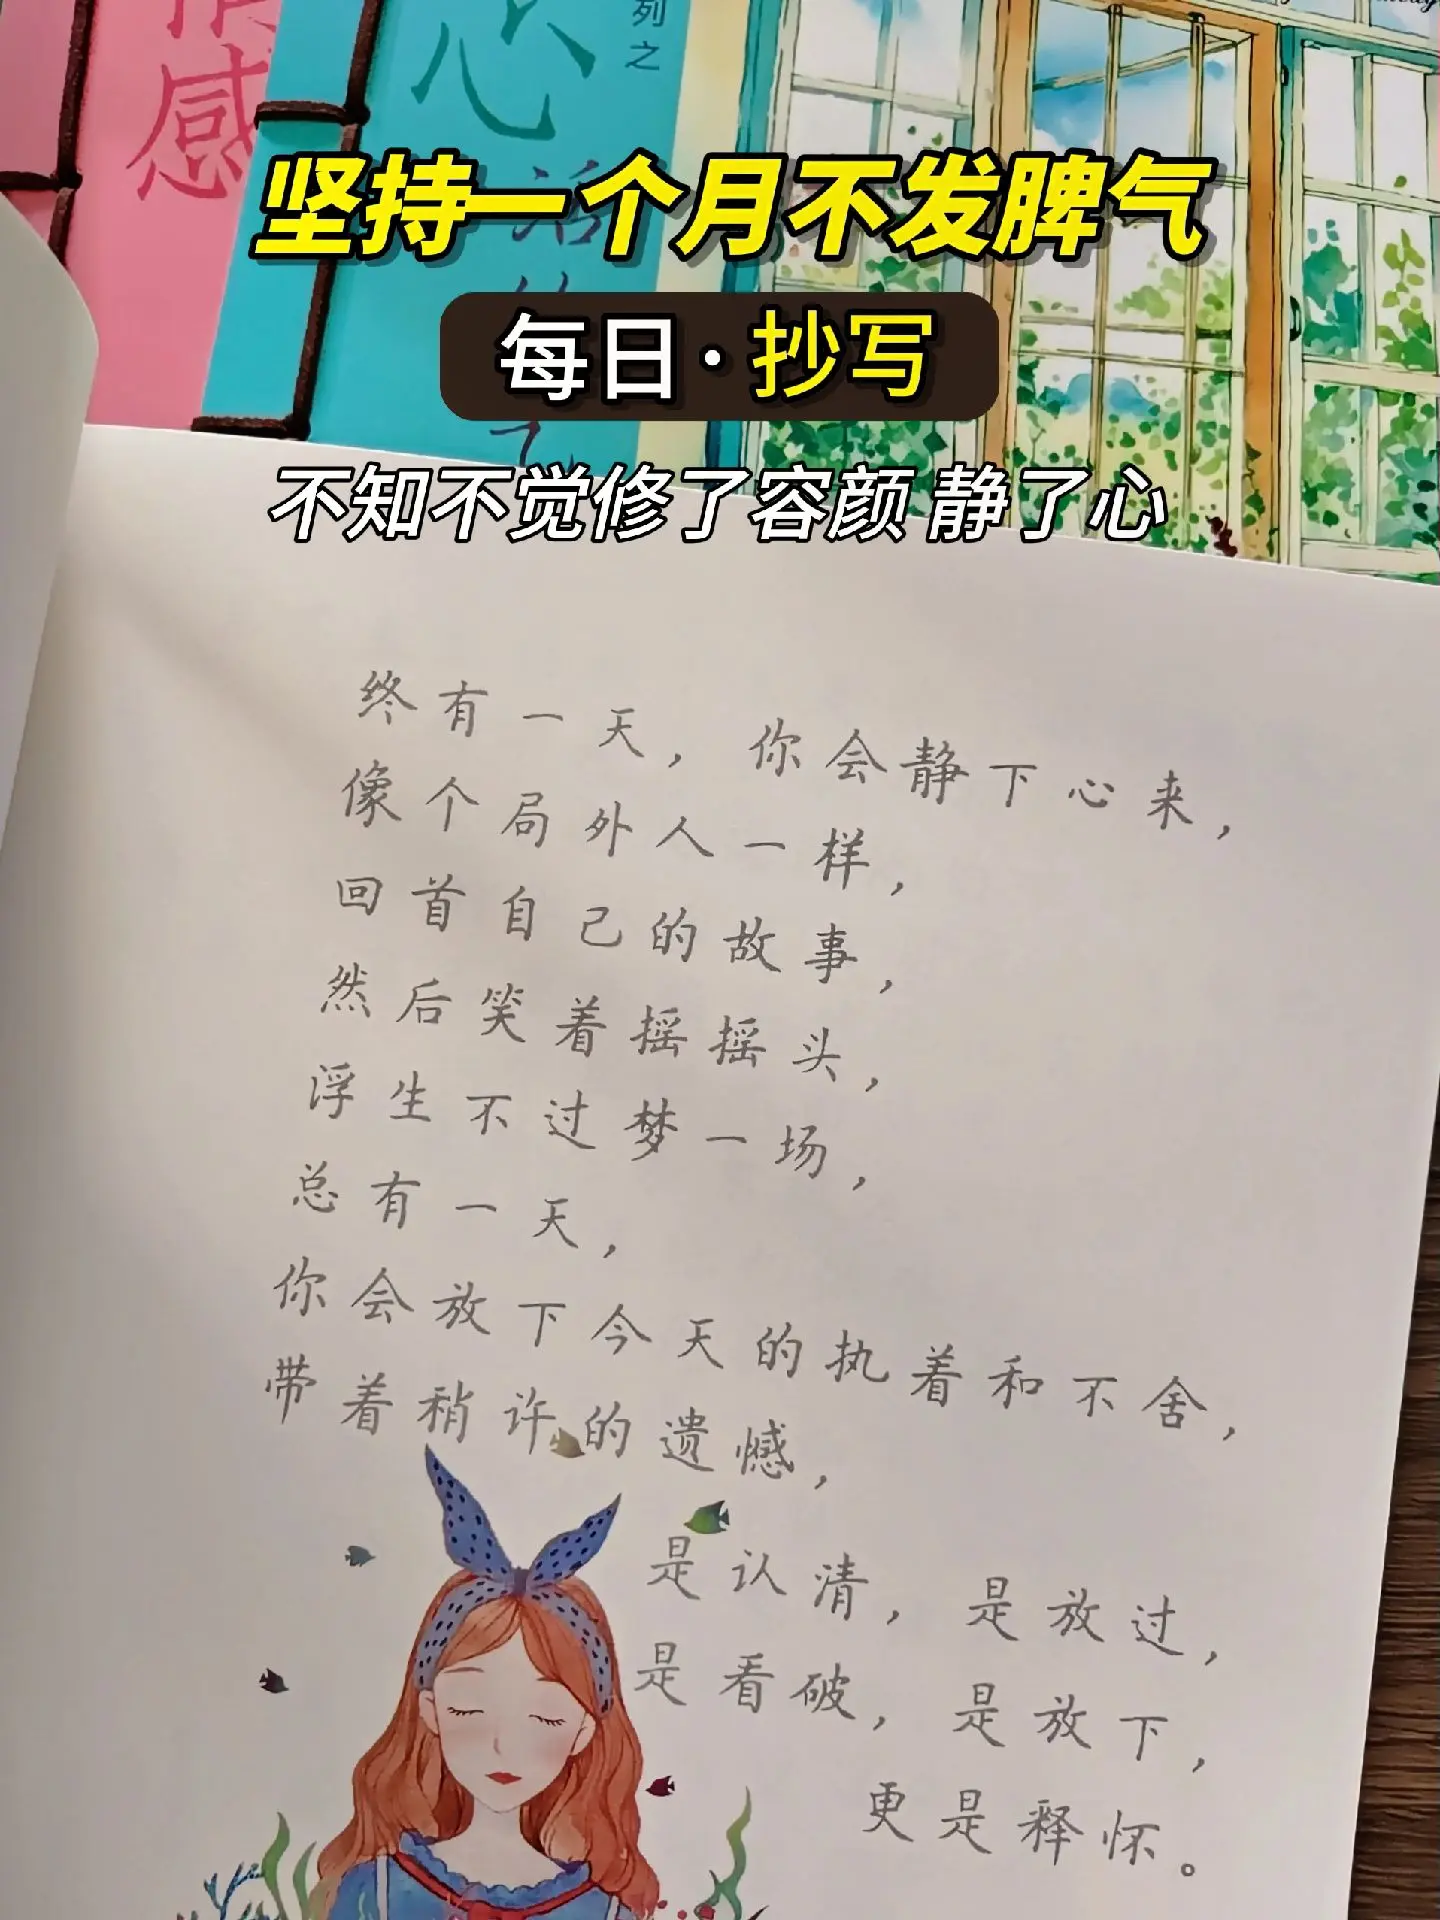 感
列之
心
活
坚持一个月不发脾气
每日·抄写
不知不觉修了容颜 静了心
终有一天，你会静下心来，
像个局外人一样，
回首自己的故事，
然后笑着摇摇头，
浮生不过梦一场，
总有一天，
你会放下今天的执着和不舍，
带着稍许的遗憾，
是认清，是放过，
是看破，是放下，
更是释怀。